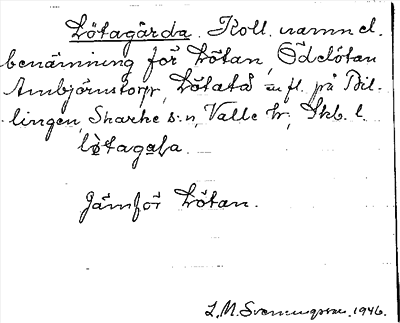 Lötagärda. Koll. namn el.
benämning för Lötan, Ödelötan
Ambjörnstorp, Lötatå m. fl. på Bil-
lingen, Skarke s:n, Valle hr, Skb. l.
lötagaḷa.
Jämför Lötan.
L.M. Svenungsson. 1946.